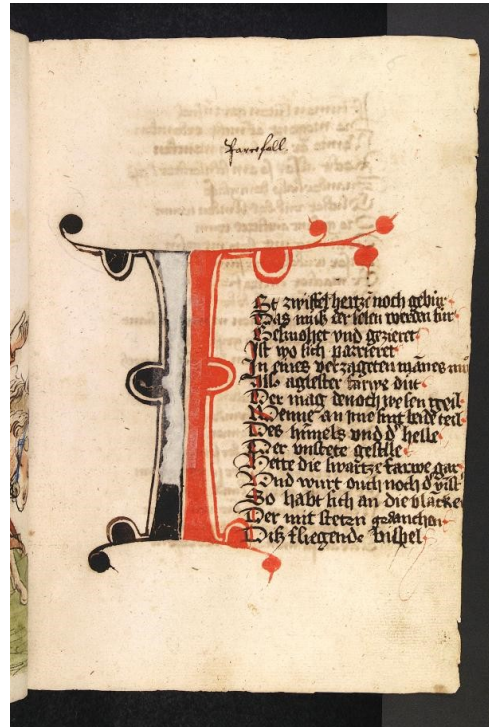 Parcifall.
I
St zwifel hertzē noch gebur
Das muß der selen werden sur
Gesmohet vnd gezieret
Ist wo sich parrieret
In eines verzageten mānes
Als aglester farwe dut
Der mag denoch wesen geil
Wenne an jme sint beide teil
Des himels vnd d' helle
Der vnstete geselle
Hette die swartze farwe gar
Vnd wurt ouch noch d'
So habt sich an die blacke
Der mit stetzn gedancken
Diß fliegende bispel